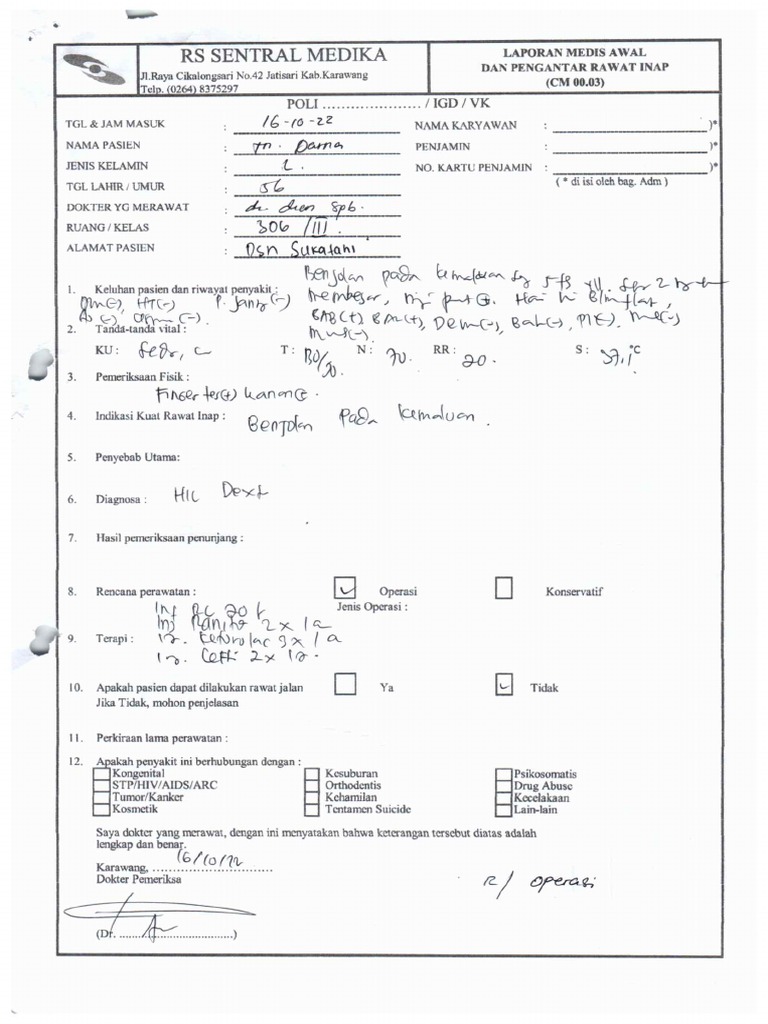 RS SENTRAL MEDIKA
Jl.Raya Cikalongsari No.42 Jatisari Kab.Karawang
Telp. (0264) 8375297
LAPORAN MEDIS AWAL
DAN PENGANTAR RAWAT INAP
(CM 00.03)
POLI ..................... / IGD / VK
TGL & JAM MASUK : 16-10-22
NAMA KARYAWAN : )*
NAMA PASIEN : tn. Darna
PENJAMIN : )*
JENIS KELAMIN : L.
NO. KARTU PENJAMIN : )*
TGL LAHIR / UMUR : 56
( * di isi oleh bag. Adm )
DOKTER YG MERAWAT : dr. SpB.
RUANG / KELAS : 306 / III
ALAMAT PASIEN : Dsn Sukatani
1. Keluhan pasien dan riwayat penyakit : Benjolan pada kemaluan
DM(-), HT(-) P. Jantung(-) membesar, Hari ini
BAB(+) BAK(+), Dem(-), Bat(-),
2. Tanda-tanda vital :
KU : T : N : 70. RR : 20. S : 37,1 °C
3. Pemeriksaan Fisik :
Finger tes(+)
4. Indikasi Kuat Rawat Inap : Benjolan pada kemaluan.
5. Penyebab Utama:
6. Diagnosa : HIL Dext
7. Hasil pemeriksaan penunjang :
8. Rencana perawatan : Operasi Konservatif
Jenis Operasi :
Inf RL 20 t
Inj Ranito 2 x 1a
9. Terapi : Ketorolac 3 x 1a
Cefti 2 x
10. Apakah pasien dapat dilakukan rawat jalan Ya Tidak
Jika Tidak, mohon penjelasan
11. Perkiraan lama perawatan :
12. Apakah penyakit ini berhubungan dengan :
Kongenital Kesuburan Psikosomatis
STP/HIV/AIDS/ARC Orthodentis Drug Abuse
Tumor/Kanker Kehamilan Kecelakaan
Kosmetik Tentamen Suicide Lain-lain
Saya dokter yang merawat, dengan ini menyatakan bahwa keterangan tersebut diatas adalah
lengkap dan benar.
Karawang, 16/10/22
Dokter Pemeriksa
R/ operasi
(Dr. ..............................)